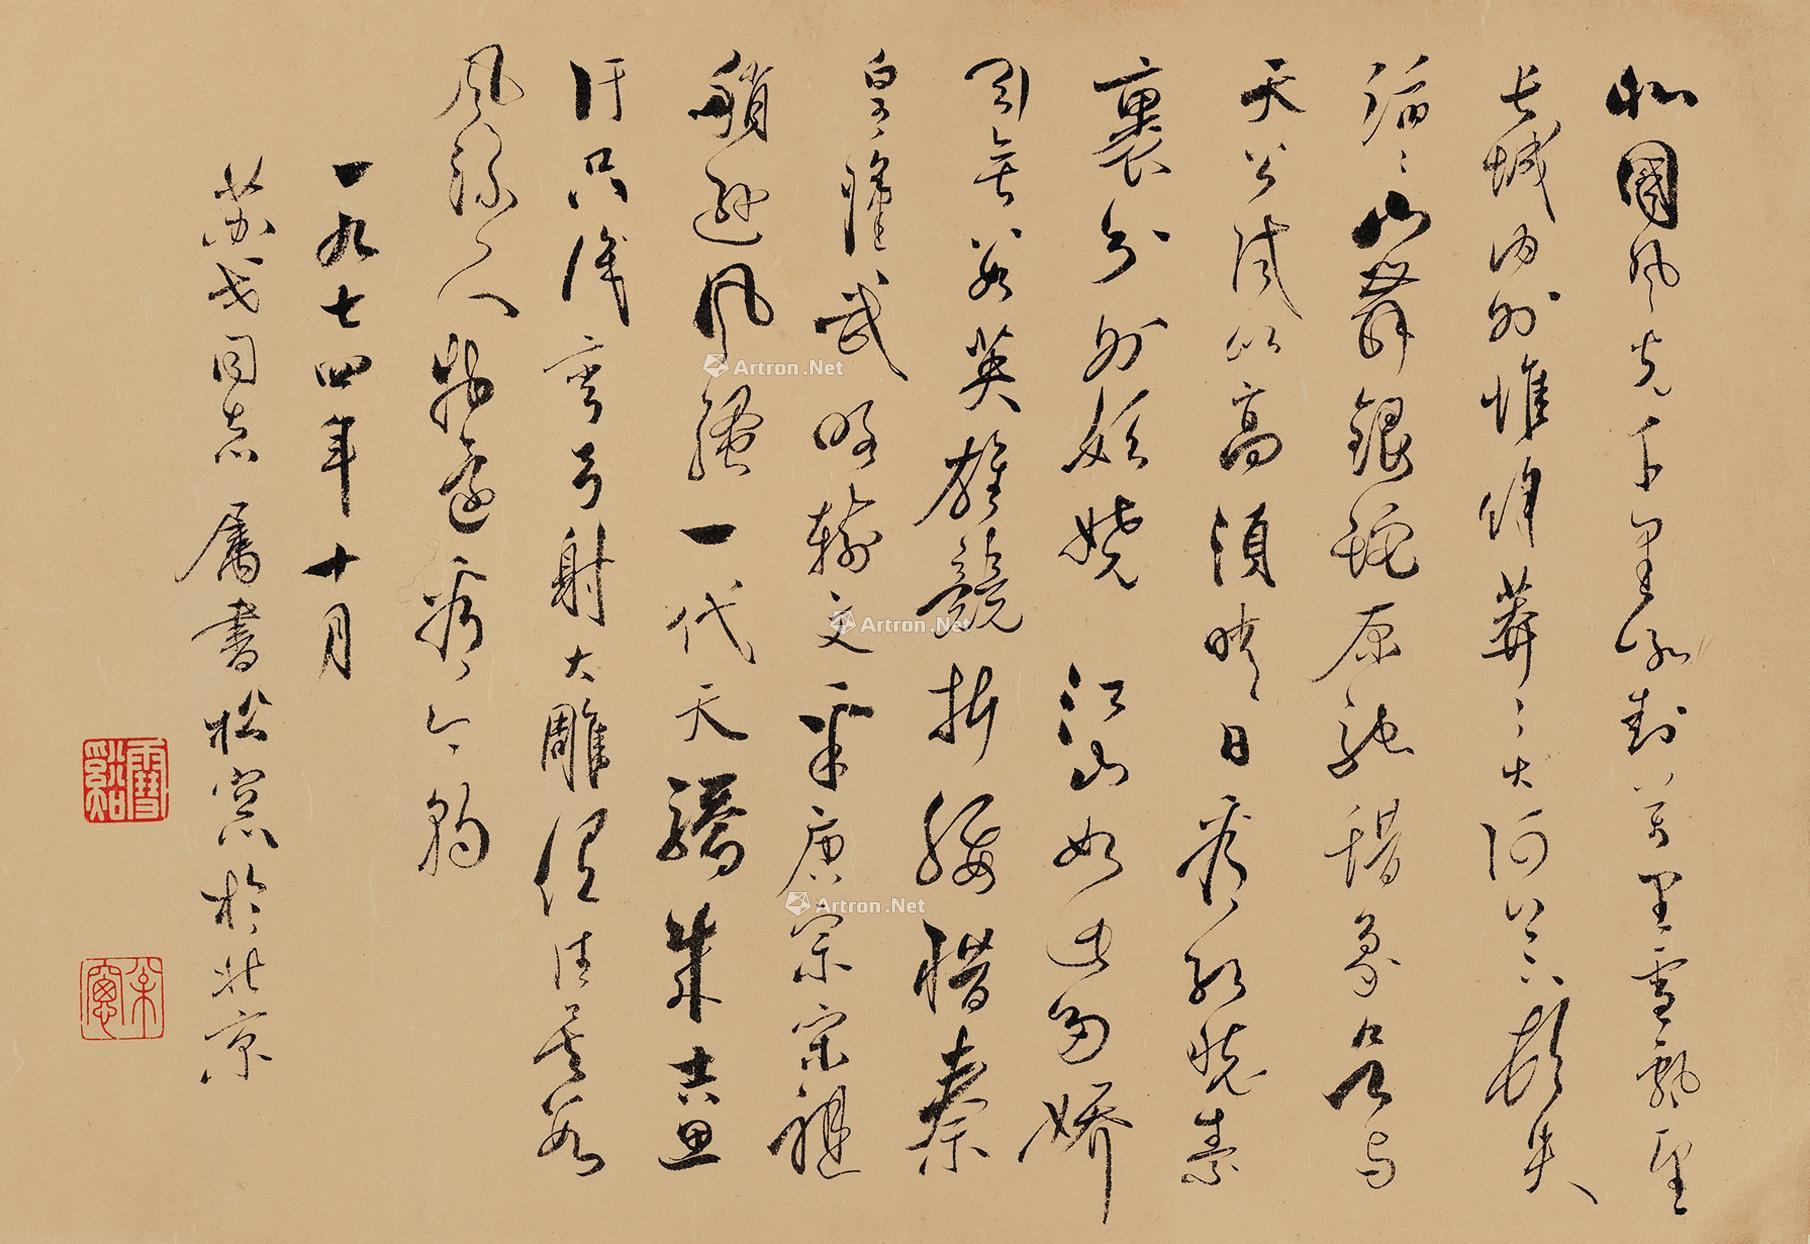 北國風光千里冰封萬里雪飄望
長城內外惟餘莽〻大河上下頓失
滔〻山舞銀蛇原馳蠟象欲與
天公試比高須晴日看紅裝素
裹分外妖嬈 江山如此多嬌
引無數英雄競折腰惜秦
皇漢武略輸文采唐宗宋祖
稍遜風騷一代天驕成吉思
汗只識彎弓射大雕俱往矣數
風流人物還看今朝
一九七四年十月
苏戈同志属書松窗於北京
Artron.Net
Artron.Net
Artron.Net